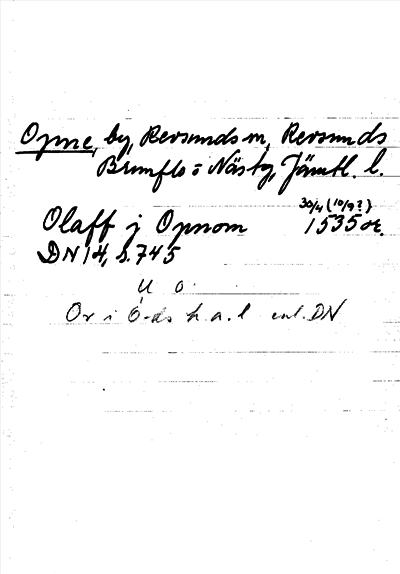 Opne, by, Revsunds sn, Revsunds
Brunflo o Näs tg, Jämtl. l.
Olaff j Opnom 30/4 (10/9?) 1535 or.
DN 14, s. 745
u o
Or i ö-ds h. a. l enl. DN